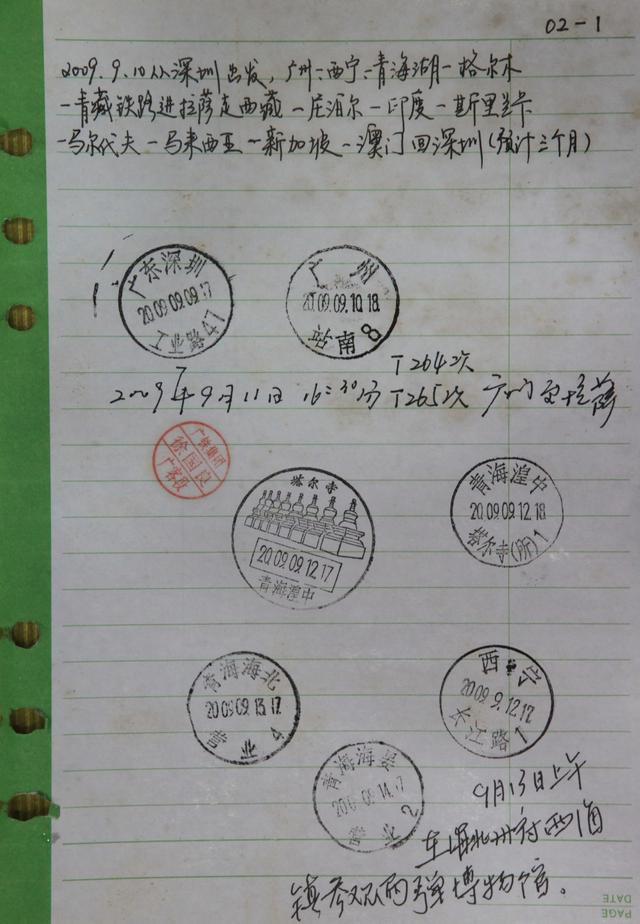 02-1
2009.9.10从深圳出发,广州=西宁=青海湖一格尔木
一青藏铁路进拉萨走西藏一尼泊尔一印度一斯里兰卡
一马尔代夫一马来西亚一新加坡一澳门回深圳(预计三个月)
广东深圳
2009.09.09.17
工业路47
广州
2009.09.10.18
站南8
T264次
2009年9月11日 16=30分 T265次 广州至拉萨
广铁集团
徐国良
广客段
塔尔寺
2009.09.12.17
青海湟中
青海湟中
2009.09.12.18
塔尔寺(所)1
青海海北
2009.09.13.17
营业4
西宁
2009.9.12.17
长江路1
青海海晏
09.14.17
营业2
9月13日上午
在海北州府西海
镇参观原子弹博物馆。
PAGE
DATE